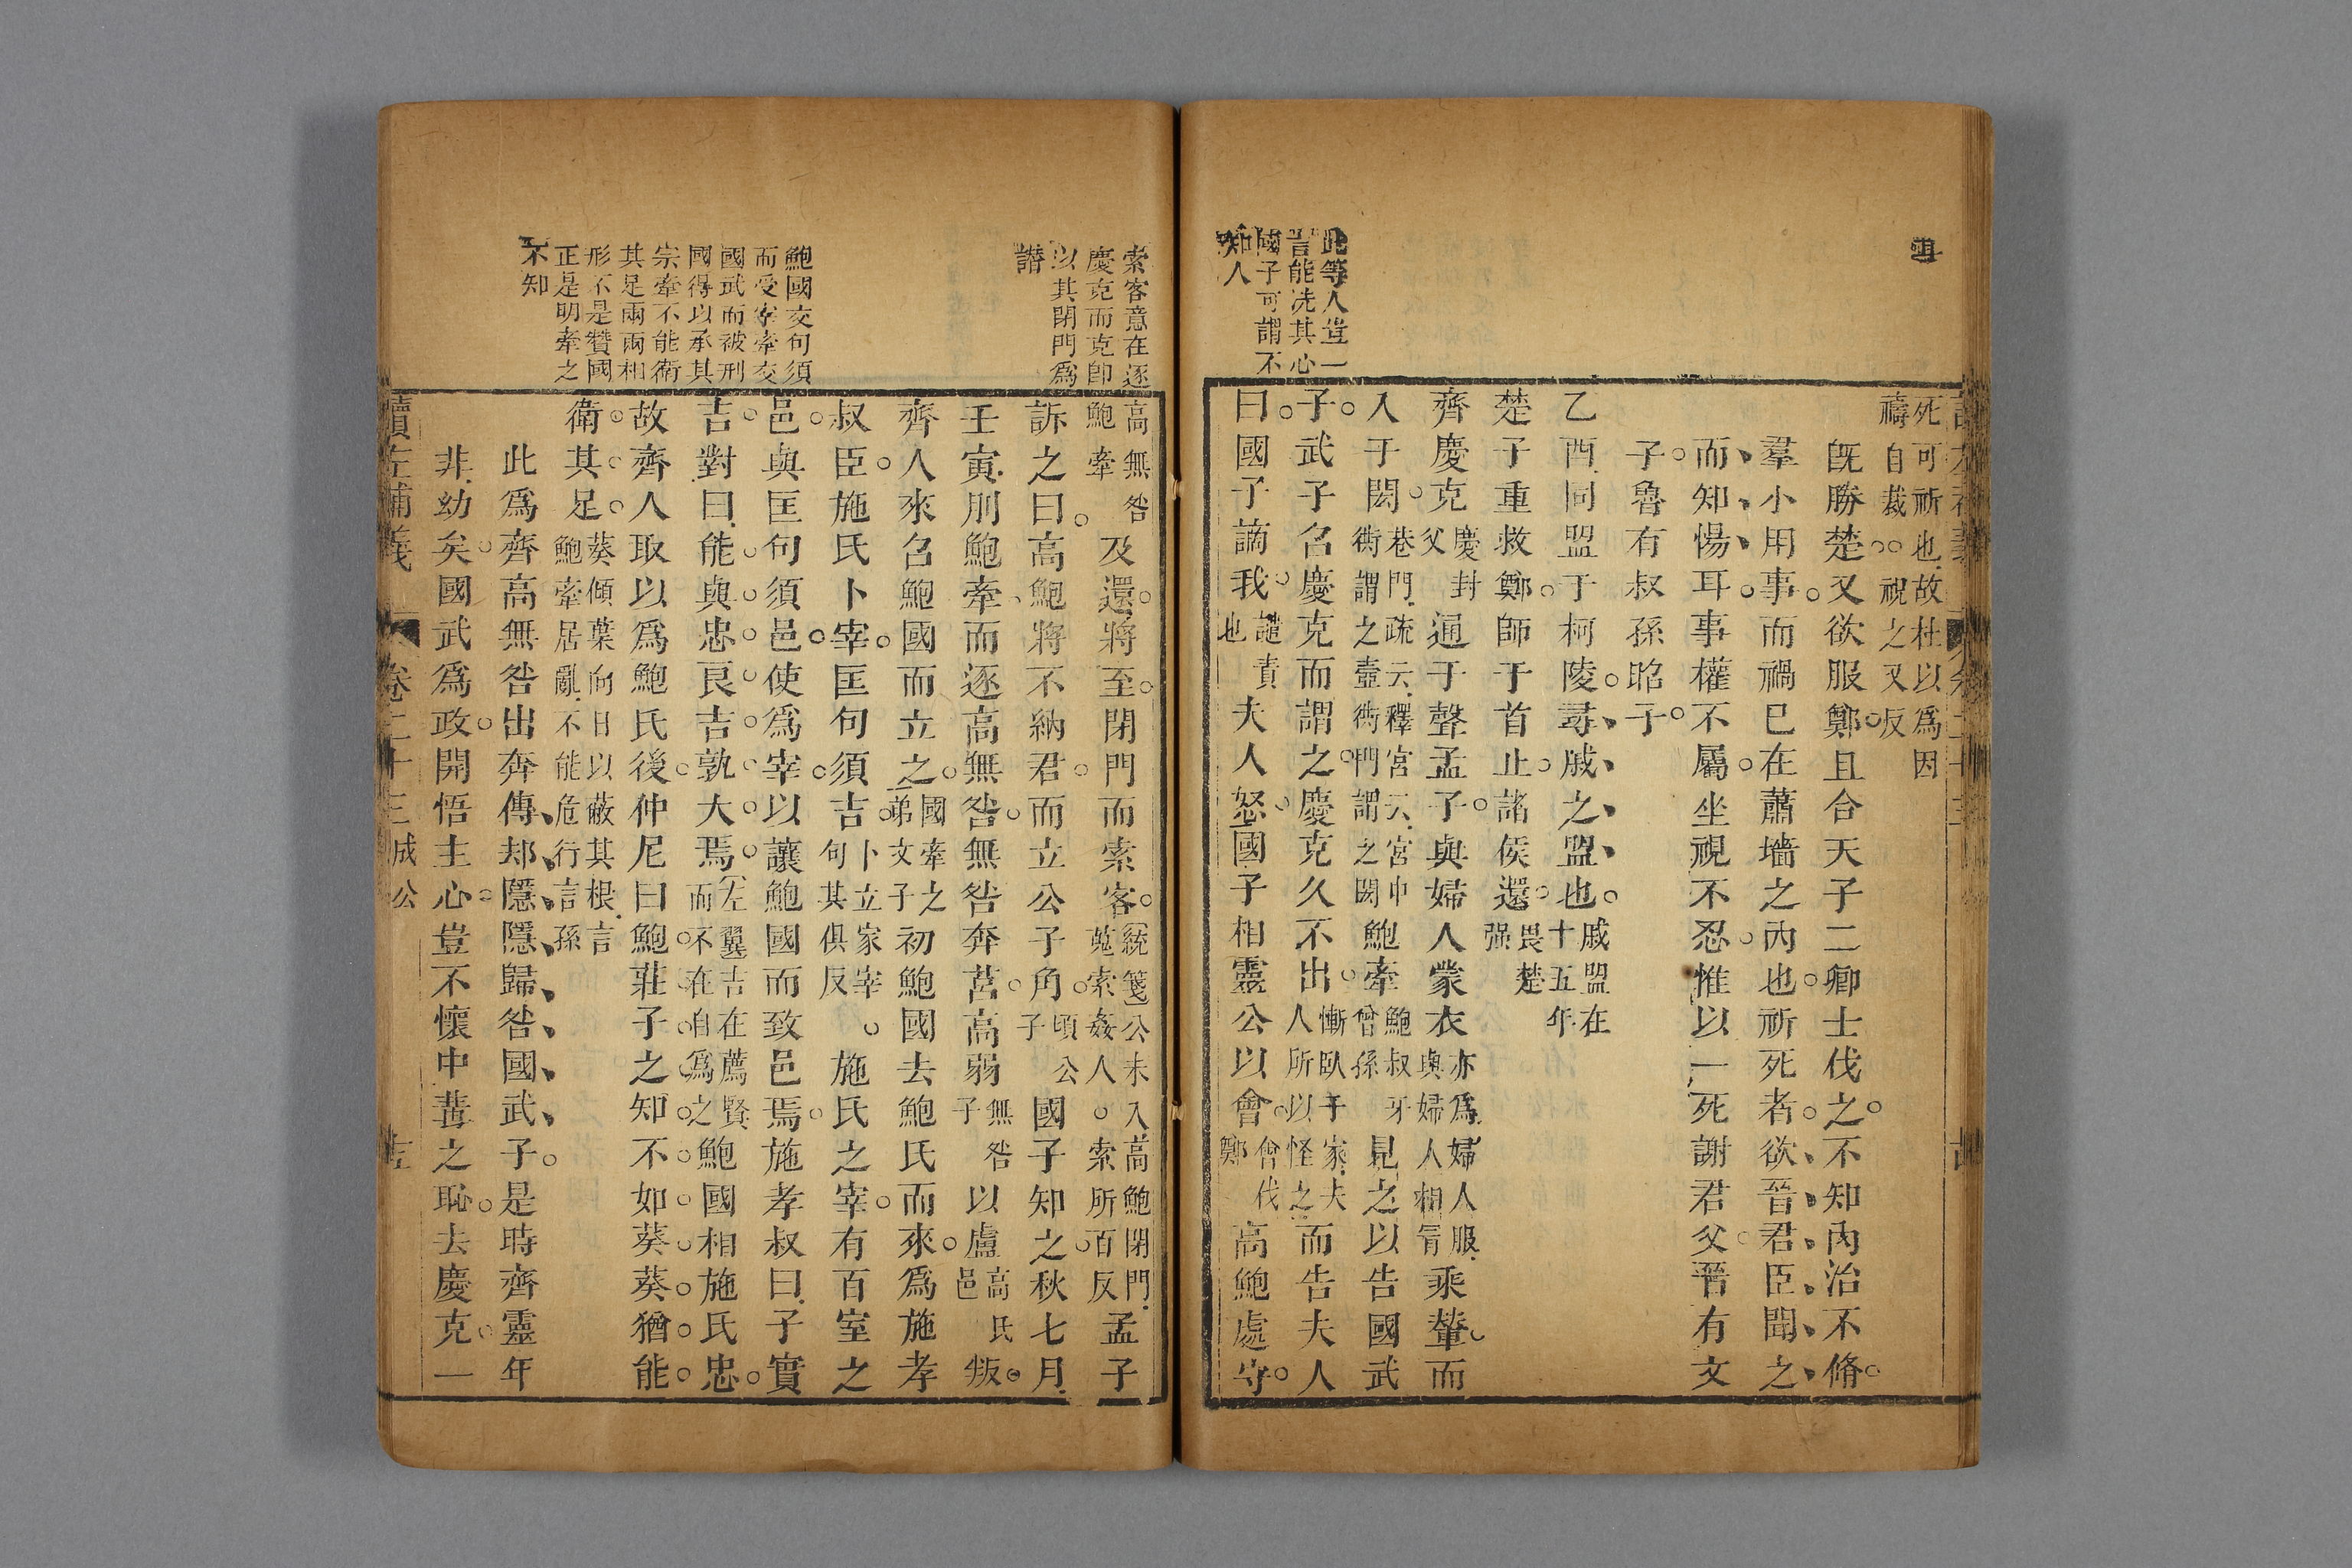 死可祈也故杜以爲因
禱自裁視之又反
既勝楚又欲服鄭且合天子二卿士伐之不知內治不脩
羣小用事而禍巳在蕭墻之內也祈死者欲晉君臣聞之
而知惕耳事權不屬坐視不忍惟以一死謝君父晉有文
子魯有叔孫昭子
乙酉同盟于柯陵尋戚之盟也戚盟在十五年
楚子重救鄭師于首止諸侯還畏楚强
齊慶克慶封父通于聲孟子與婦人蒙衣亦爲婦人服與婦人相冐乘輦而
入于閎巷門疏云釋宮云宮中衖謂之壼衖門謂之閎鮑牽鮑叔牙曾孫見之以告國武
子武子名慶克而謂之慶克久不出慚臥于家夫人所以怪之而告夫人
曰國子謫我譴責也夫人怒國子相靈公以會會伐鄭高鮑處守
此等人豈一
言能洗其心
國子可謂不
知人
高無咎鮑牽及還將至閉門而索客統箋公未入高鮑閉門蒐索姦人索所百反孟子
訴之曰高鮑將不納君而立公子角頃公子國子知之秋七月
壬寅刖鮑牽而逐高無咎無咎奔莒高弱無咎子以盧高氏邑叛
齊人來名鮑國而立之國牽之弟文子初鮑國去鮑氏而來爲施孝
叔臣施氏卜宰匡句須吉卜立家宰句其俱反施氏之宰有百室之
邑與匡句須邑使爲宰以讓鮑國而致邑焉施孝叔曰子實
吉對曰能與忠良吉孰大焉左翼吉在薦賢而不在自爲之鮑國相施氏忠
故齊人取以爲鮑氏後仲尼曰鮑莊子之知不如葵葵猶能
衛其足葵傾葉向日以蔽其根言鮑牽居亂不能危行言孫
此爲齊高無咎出奔傳郄隱隱歸咎國武子是時齊靈年
非幼矣國武爲政開悟主心豈不懷中冓之恥去慶克一
索客意在逐
慶克而克卽
以其閉門爲
譖
鮑國交句須
而受宰牽交
國武而被刑
國得以承其
宗牽不能衛
其足兩兩相
形不是贊國
正是明牽之
不知
讀左補義 卷二十三成公